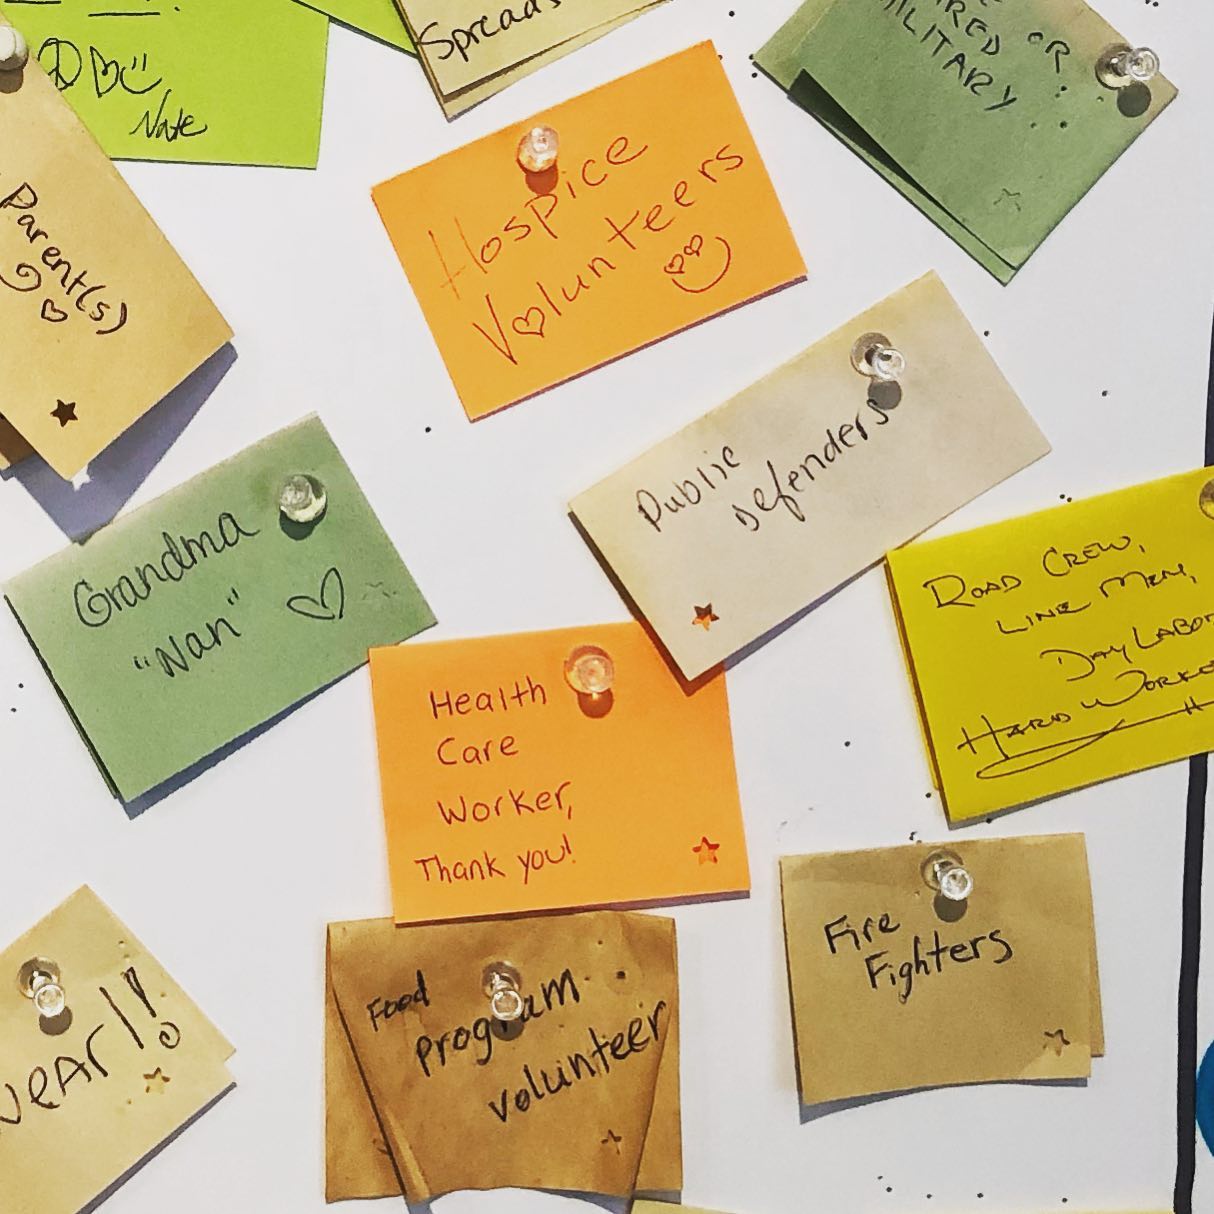 Nate
Spreads
OR
MILITARY
Parent(s)
Hospice
Volunteers
Public
Defenders
Grandma
"Nan"
Road Crew,
Line Men,
Hard
Health
Care
Worker,
Thank you!
Fire
Fighters
Food
Program
Volunteer